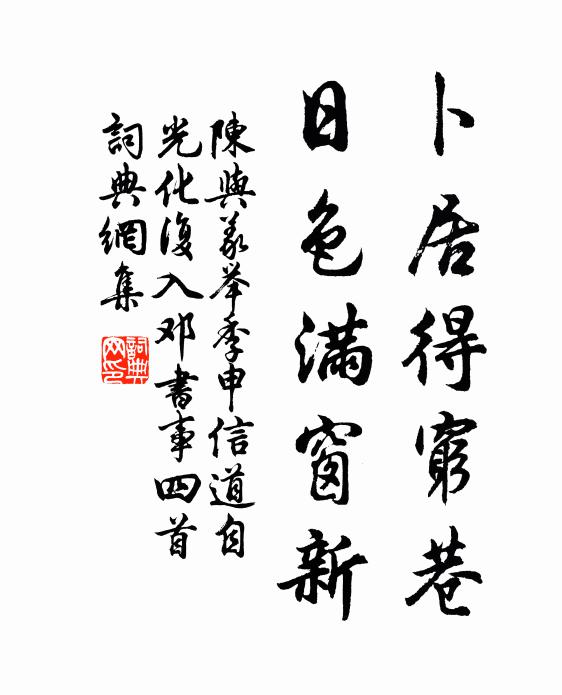 卜居得窮巷
日色滿窗新
陳與義舉季申信道自
光化復入邓書事四首
詞典網集
詞典網印